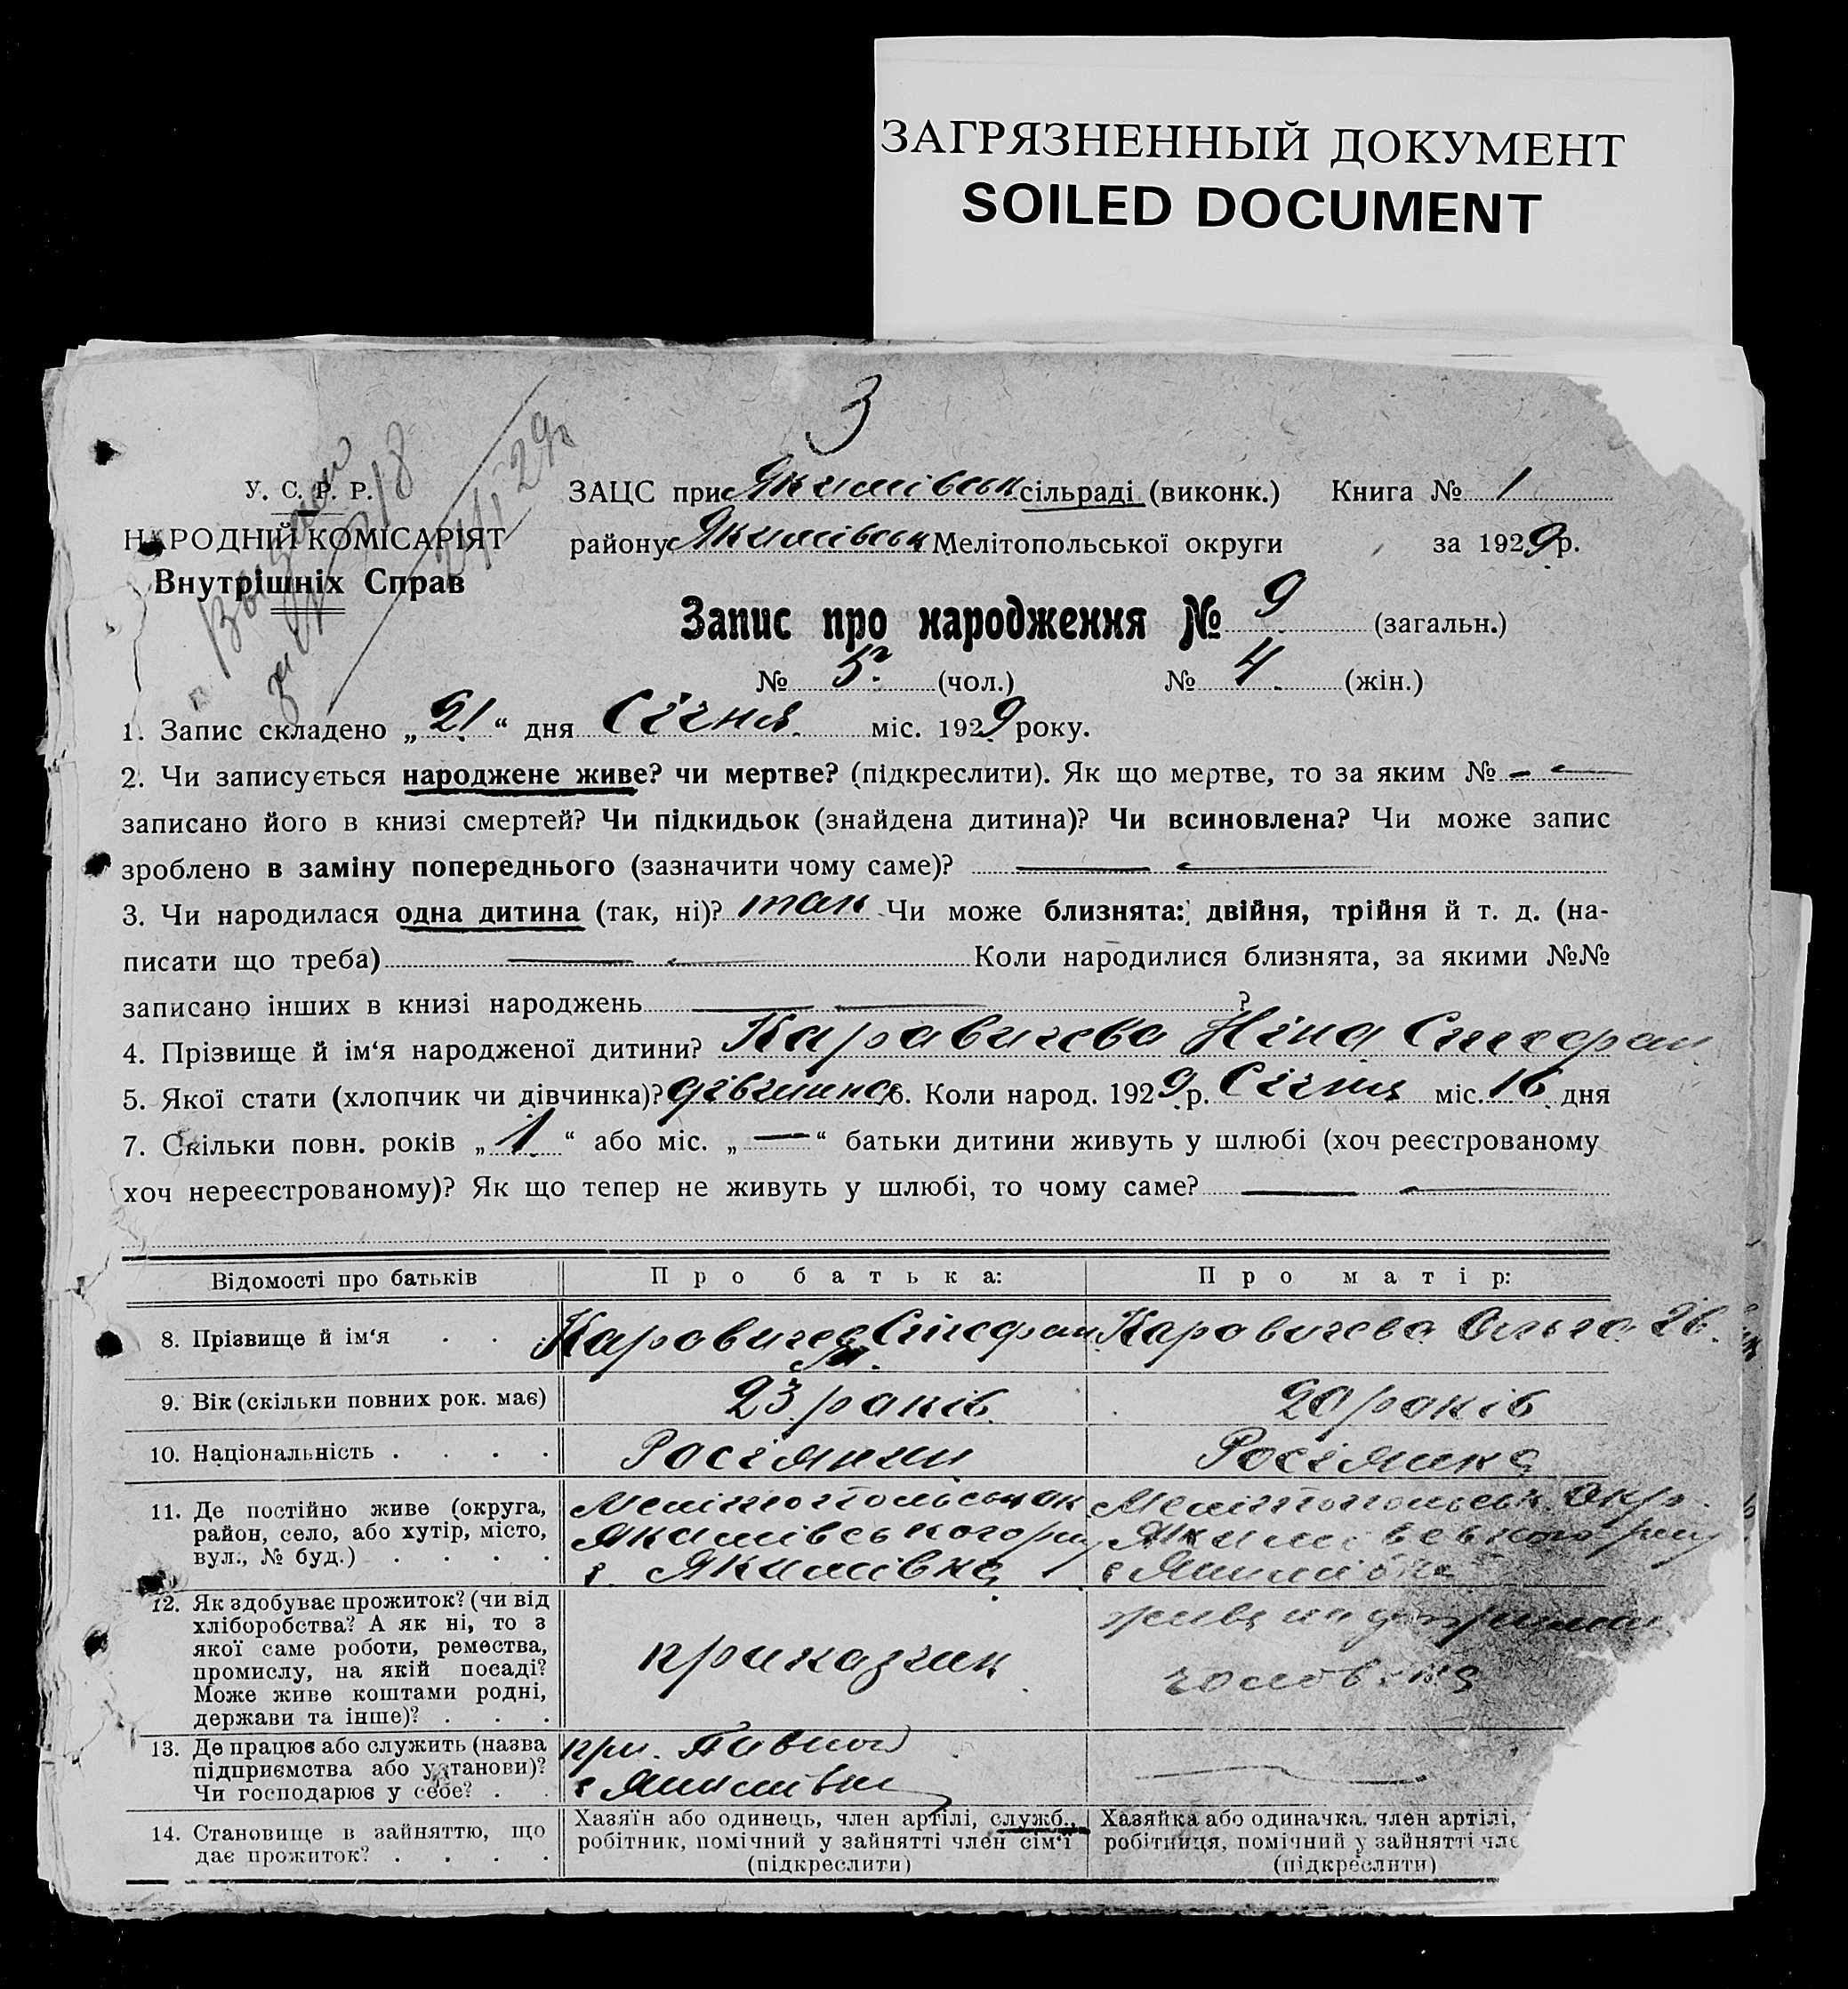 ЗАГРЯЗНЕННЫЙ ДОКУМЕНТ
SOILED DOCUMENT
3
У. С. Р. Р.
НАРОДНІЙ КОМІСАРІЯТ
Внутрішніх Справ
ЗАЦС при Якимівськ сільраді (виконк.) Книга № 1
району Якимівськ Мелітопольської округи за 1929 р.
Запис про народження № 9 (загальн.)
№ 5 (чол.) № 4 (жін.)
1. Запис складено „21“ дня Січня міс. 1929 року.
2. Чи записується народжене живе? чи мертве? (підкреслити). Як що мертве, то за яким № —
записано його в книзі смертей? Чи підкидьок (знайдена дитина)? Чи всиновлена? Чи може запис
зроблено в заміну попереднього (зазначити чому саме)? —
3. Чи народилася одна дитина (так, ні)? так Чи може близнята: двійня, трійня й т. д. (на-
писати що треба) — Коли народилися близнята, за якими №№
записано інших в книзі народжень — ?
4. Прізвище й ім‘я народженої дитини? Каравичева Ніна Стефан
5. Якої стати (хлопчик чи дівчинка)? дівчинка 6. Коли народ. 1929 р. Січня міс. 16 дня
7. Скільки повн. років „1“ або міс. „—“ батьки дитини живуть у шлюбі (хоч реєстрованому
хоч нереєстрованому)? Як що тепер не живуть у шлюбі, то чому саме? —
Відомості про батьків Про батька: Про матір:
8. Прізвище й ім‘я . . . Каровичев Стефан Каровичева Ольга
9. Вік (скільки повних рок. має) 23 років 20 років
10. Національність . . . . Росіянин Росіянка
11. Де постійно живе (округа, Мелітопольськ ок Мелітопольськ. Окр.
район, село, або хутір, місто, Якимівського рну Якимівського рну
вул., № буд.) . . . . с. Якимівка с Якимівка
12. Як здобуває прожиток? (чи від
хліборобства? А як ні, то з
якої саме роботи, ремества, приказчик
промислу, на якій посаді?
Може живе коштами родні,
держави та інше)? . . .
13. Де працює або служить (назва
підприємства або установи)?
Чи господарює у себе? . . с Якимівки
14. Становище в зайняттю, що
дає прожиток? . . . .
Хазяїн або одинець, член артілі, служб.,
робітник, помічний у зайнятті член сім‘ї
(підкреслити)
Хазяйка або одиначка, член артілі,
робітниця, помічний у зайнятті чле
(підкреслити)